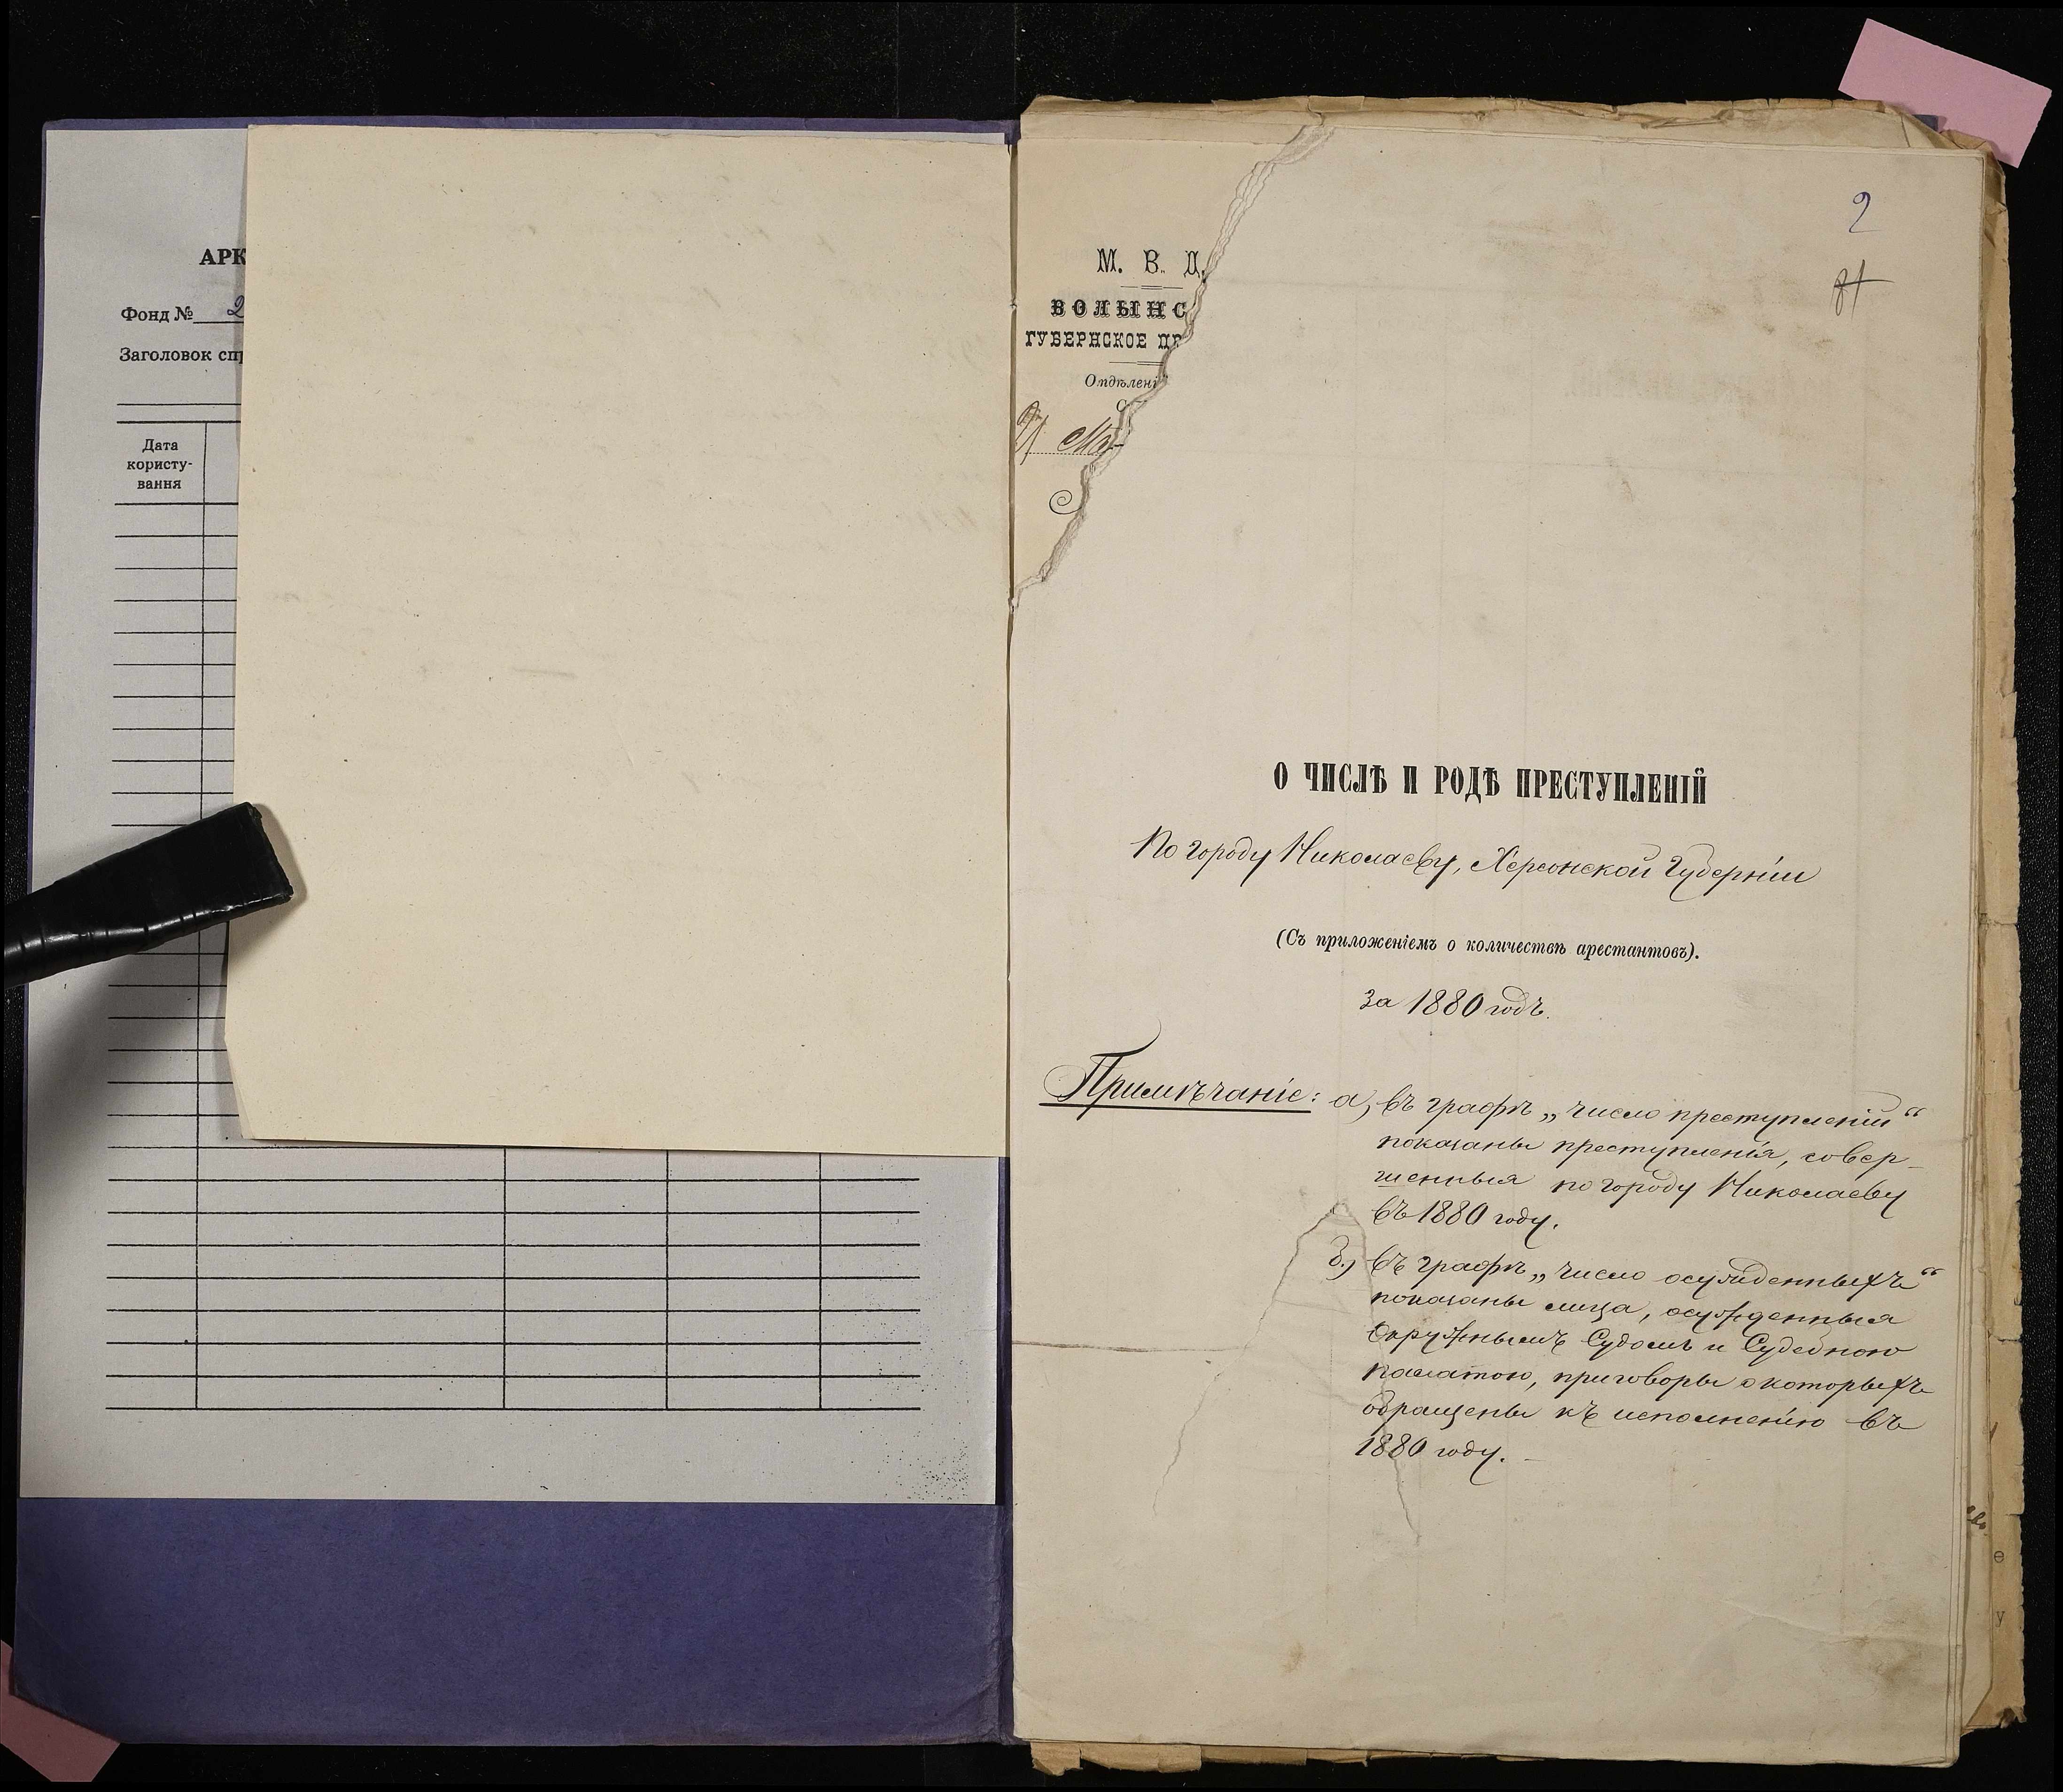 АРК
Фонд № 2
Заголовок спр
Дата
користу-
вання
М. В. Д.
ВОЛЫНС
ГУБЕРНСКОЕ ПР
Отдѣлені
2
О ЧИСЛѢ И РОДѢ ПРЕСТУПЛЕНІЙ
По городу Николаеву, Херсонской Губерніи
(Съ приложеніемъ о количествѣ арестантовъ).
За 1880 годъ.
Примѣчаніе: а) въ графѣ „число преступленій“
показаны преступленія, совер-
шенныя по городу Николаеву
въ 1880 году.
б.) въ графѣ „число осужденныхъ“
показаны лица, осужденныя
Окружнымъ Судомъ и Судебною
Палатою, приговоры о которыхъ
обращены къ исполненію въ
1880 году. –